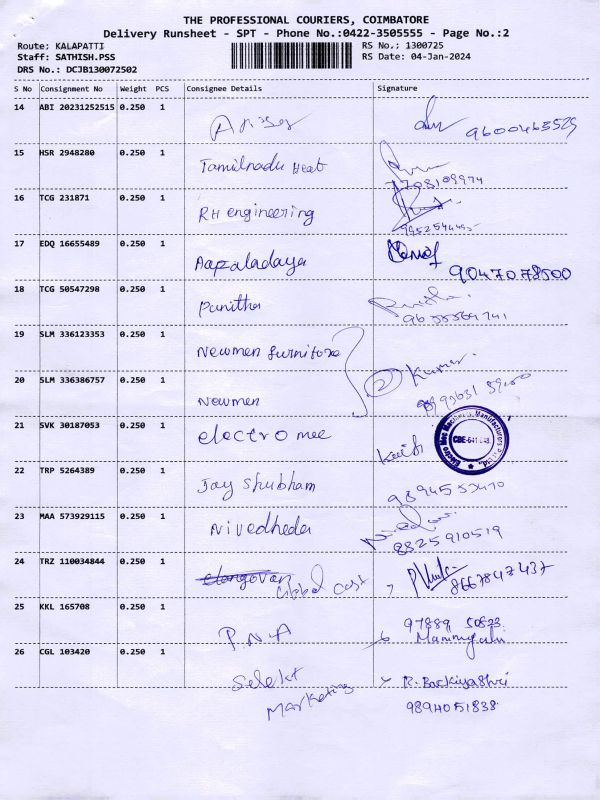 THE PROFESSIONAL COURIERS, COIMBATORE
Delivery Runsheet - SPT - Phone No.:0422-3505555 - Page No.:2
Route: KALAPATTI RS No.: 1300725
Staff: SATHISH.PSS RS Date: 04-Jan-2024
DRS No.: DCJB130072502
S No Consignment No Weight PCS Consignee Details Signature
14 ABI 20231252515 0.250 1
9600463529
15 HSR 2948280 0.250 1 Tamilnadu Heat
7708109974
16 TCG 231871 0.250 1 RH engineering
17 EDQ 16655489 0.250 1 Aapzaladaya
90470 78500
18 TCG 50547298 0.250 1 Panitha
19 SLM 336123353 0.250 1 Newmen furniture
20 SLM 336386757 0.250 1 Newmen 2 Kumar
21 SVK 30187053 0.250 1 electro mec
Electro Mec Machinery Manufacturers
22 TRP 5264389 0.250 1 Jay Shubham
9894553470
23 MAA 573929115 0.250 1 Nivedheda
8825910519
24 TRZ 110034844 0.250 1 elangovan Global cast
8667847437
25 KKL 165708 0.250 1 P.N.A
97889 50523
26 CGL 103420 0.250 1 Selekt Marketing R. Backiyashri
9894051838